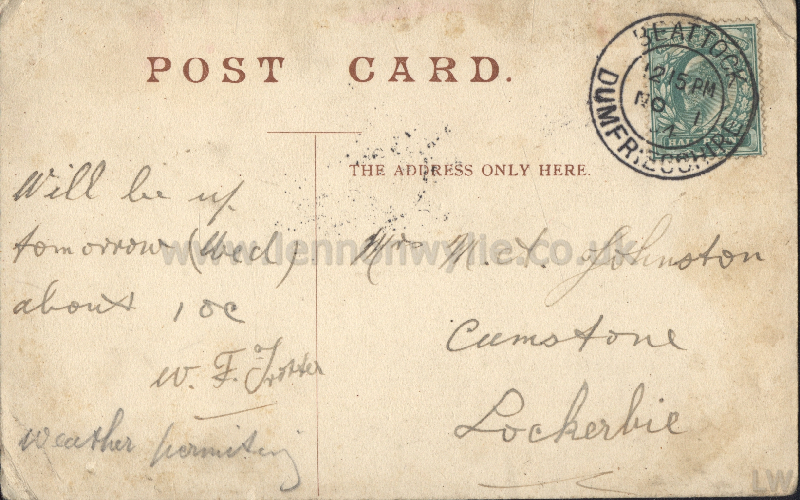 POST CARD.
BEATTOCK
12 15 PM
NO 1
DUMFRIESSHIRE
HAL
THE ADDRESS ONLY HERE.
Will be up
tomorrow (Wed).
about 1 oc
W. F. Trotter
Weather permiting
Mrs Johnston
Cumstone
Lockerbie
www.lennonwylie.co.uk
LW